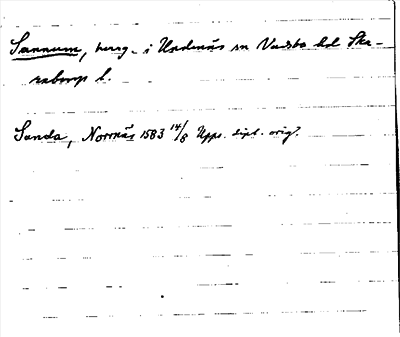 Sannum, herrg. i Undenäs sn Vadsbo hd Ska-
raborgs l.
Sanda, Norrnäs 1583 14/8 Upps. dipl. orig.